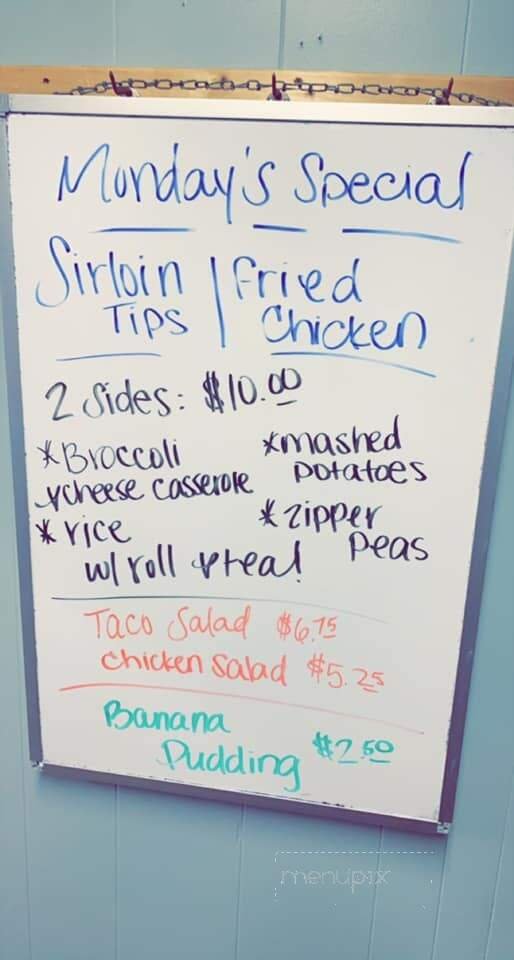 Monday's Special
Sirloin Tips | Fried Chicken
2 Sides: $10.00
*Broccoli
&cheese casserole
*mashed potatoes
*rice
*zipper peas
w/ roll & tea!
Taco Salad $6.75
Chicken Salad $5.25
Banana Pudding $2.50
menupix